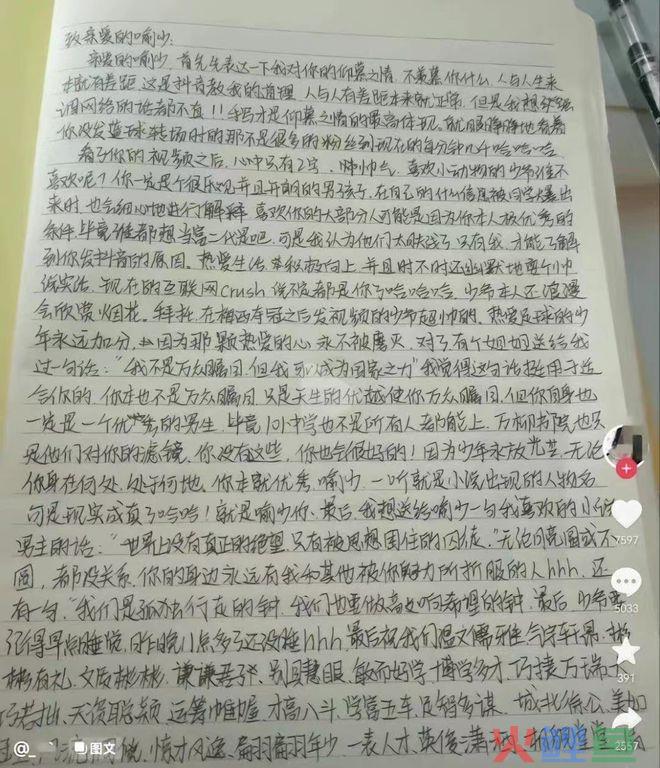 致亲爱的喻少:
亲爱的喻少,首先先表达一下我对你的仰慕之情,不羡慕你什么,人与人生来
本就有差距,这是抖音教我的道理,人与人有差距本来就正常,但是我想
网络的话都不直!!才是仰慕之情的最高体现,就眼睁睁地看着
你没发篮球转场时的那不是很多的粉丝到现在的每分钟几千哈哈哈
看了你的视频之后,心中只有2字,帅帅气,喜欢小动物的少爷谁不
喜欢呢?你一定是个很乐观并且开朗的男孩子,在自己的什么信息被同学爆出
来时,也会细心地进行解释,喜欢你的大部分人可能是因为你本人极优秀的
条件,毕竟谁都想当富二代是吧,可是我认为他们太肤浅了,只有我,才能了解
到你发抖音的原因。热爱生活,积极向上,并且时不时还幽默地耍个帅
说实话,现在的互联网crush说不定都是你了哈哈哈,少爷本人还浪漫
会欣赏烟花。拜托,在梅西夺冠之后发视频的少爷超帅的。热爱足球的少
年永远加分,因为那颗热爱的心永不被磨灭,对了有个姐姐送给我
过一句话:“我不是万众瞩目,但我可以成为国家之力”我觉得这句话挺用于送
给你的,你本也不是万众瞩目,只是天生的优越使你万众瞩目,但你自身也
一定是一个优秀的男生,毕竟101中学也不是所有人都能上,万柳书院也只
是他们对你的滤镜,你没有这些,你也会很好的!因为少年永放光芒,无论
你身在何处,处于何地,你本就优秀,喻少,一听就是小说出现的人物名
句是现实成真了哈哈!就是喻少你,最后,我想送给喻少一句我喜欢的小说
男主的话:“世界上没有真正的绝望,只有被思想困住的囚徒。”无论月亮圆或不
圆,都没关系,你的身边永远有我和其他被你努力所折服的人hhh,还
有一句,“我们是孤独行走的钟,我们也要做高处响希望的钟,最后,少爷要
记得早点睡觉,昨晚11点多了还没睡hhh,最后祝我们喻少温文儒雅,气宇轩昂,彬
彬有礼,文质彬彬,谦谦君子,别具慧眼,敏而好学,博学多才,巧捷万端,大
巧若拙,天资聪颖,运筹帷幄,才高八斗,学富五车,足智多谋,城北徐公,美如
冠玉,风流倜傥,惊才风逸,翩翩年少,一表人才,英俊潇洒,相貌堂堂
7597
5033
391
2557
@_
图文
火鲤鱼